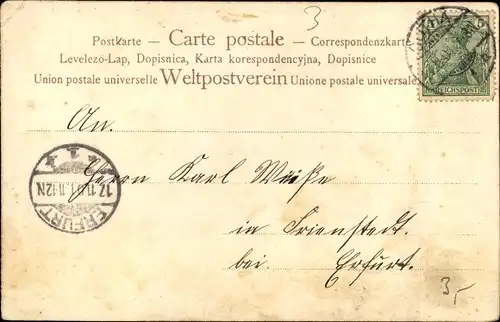 3
Postkarte — Carte postale — Correspondenzkarte
Levelező-Lap, Dopisnica, Karta korespondencyjna, Dopisnice
Union postale universelle Weltpostverein Unione postale universale
REICHSPOST
An.
Herrn Karl Weiße
in Frienstedt.
bei. Erfurt.
ERFURT
3,-